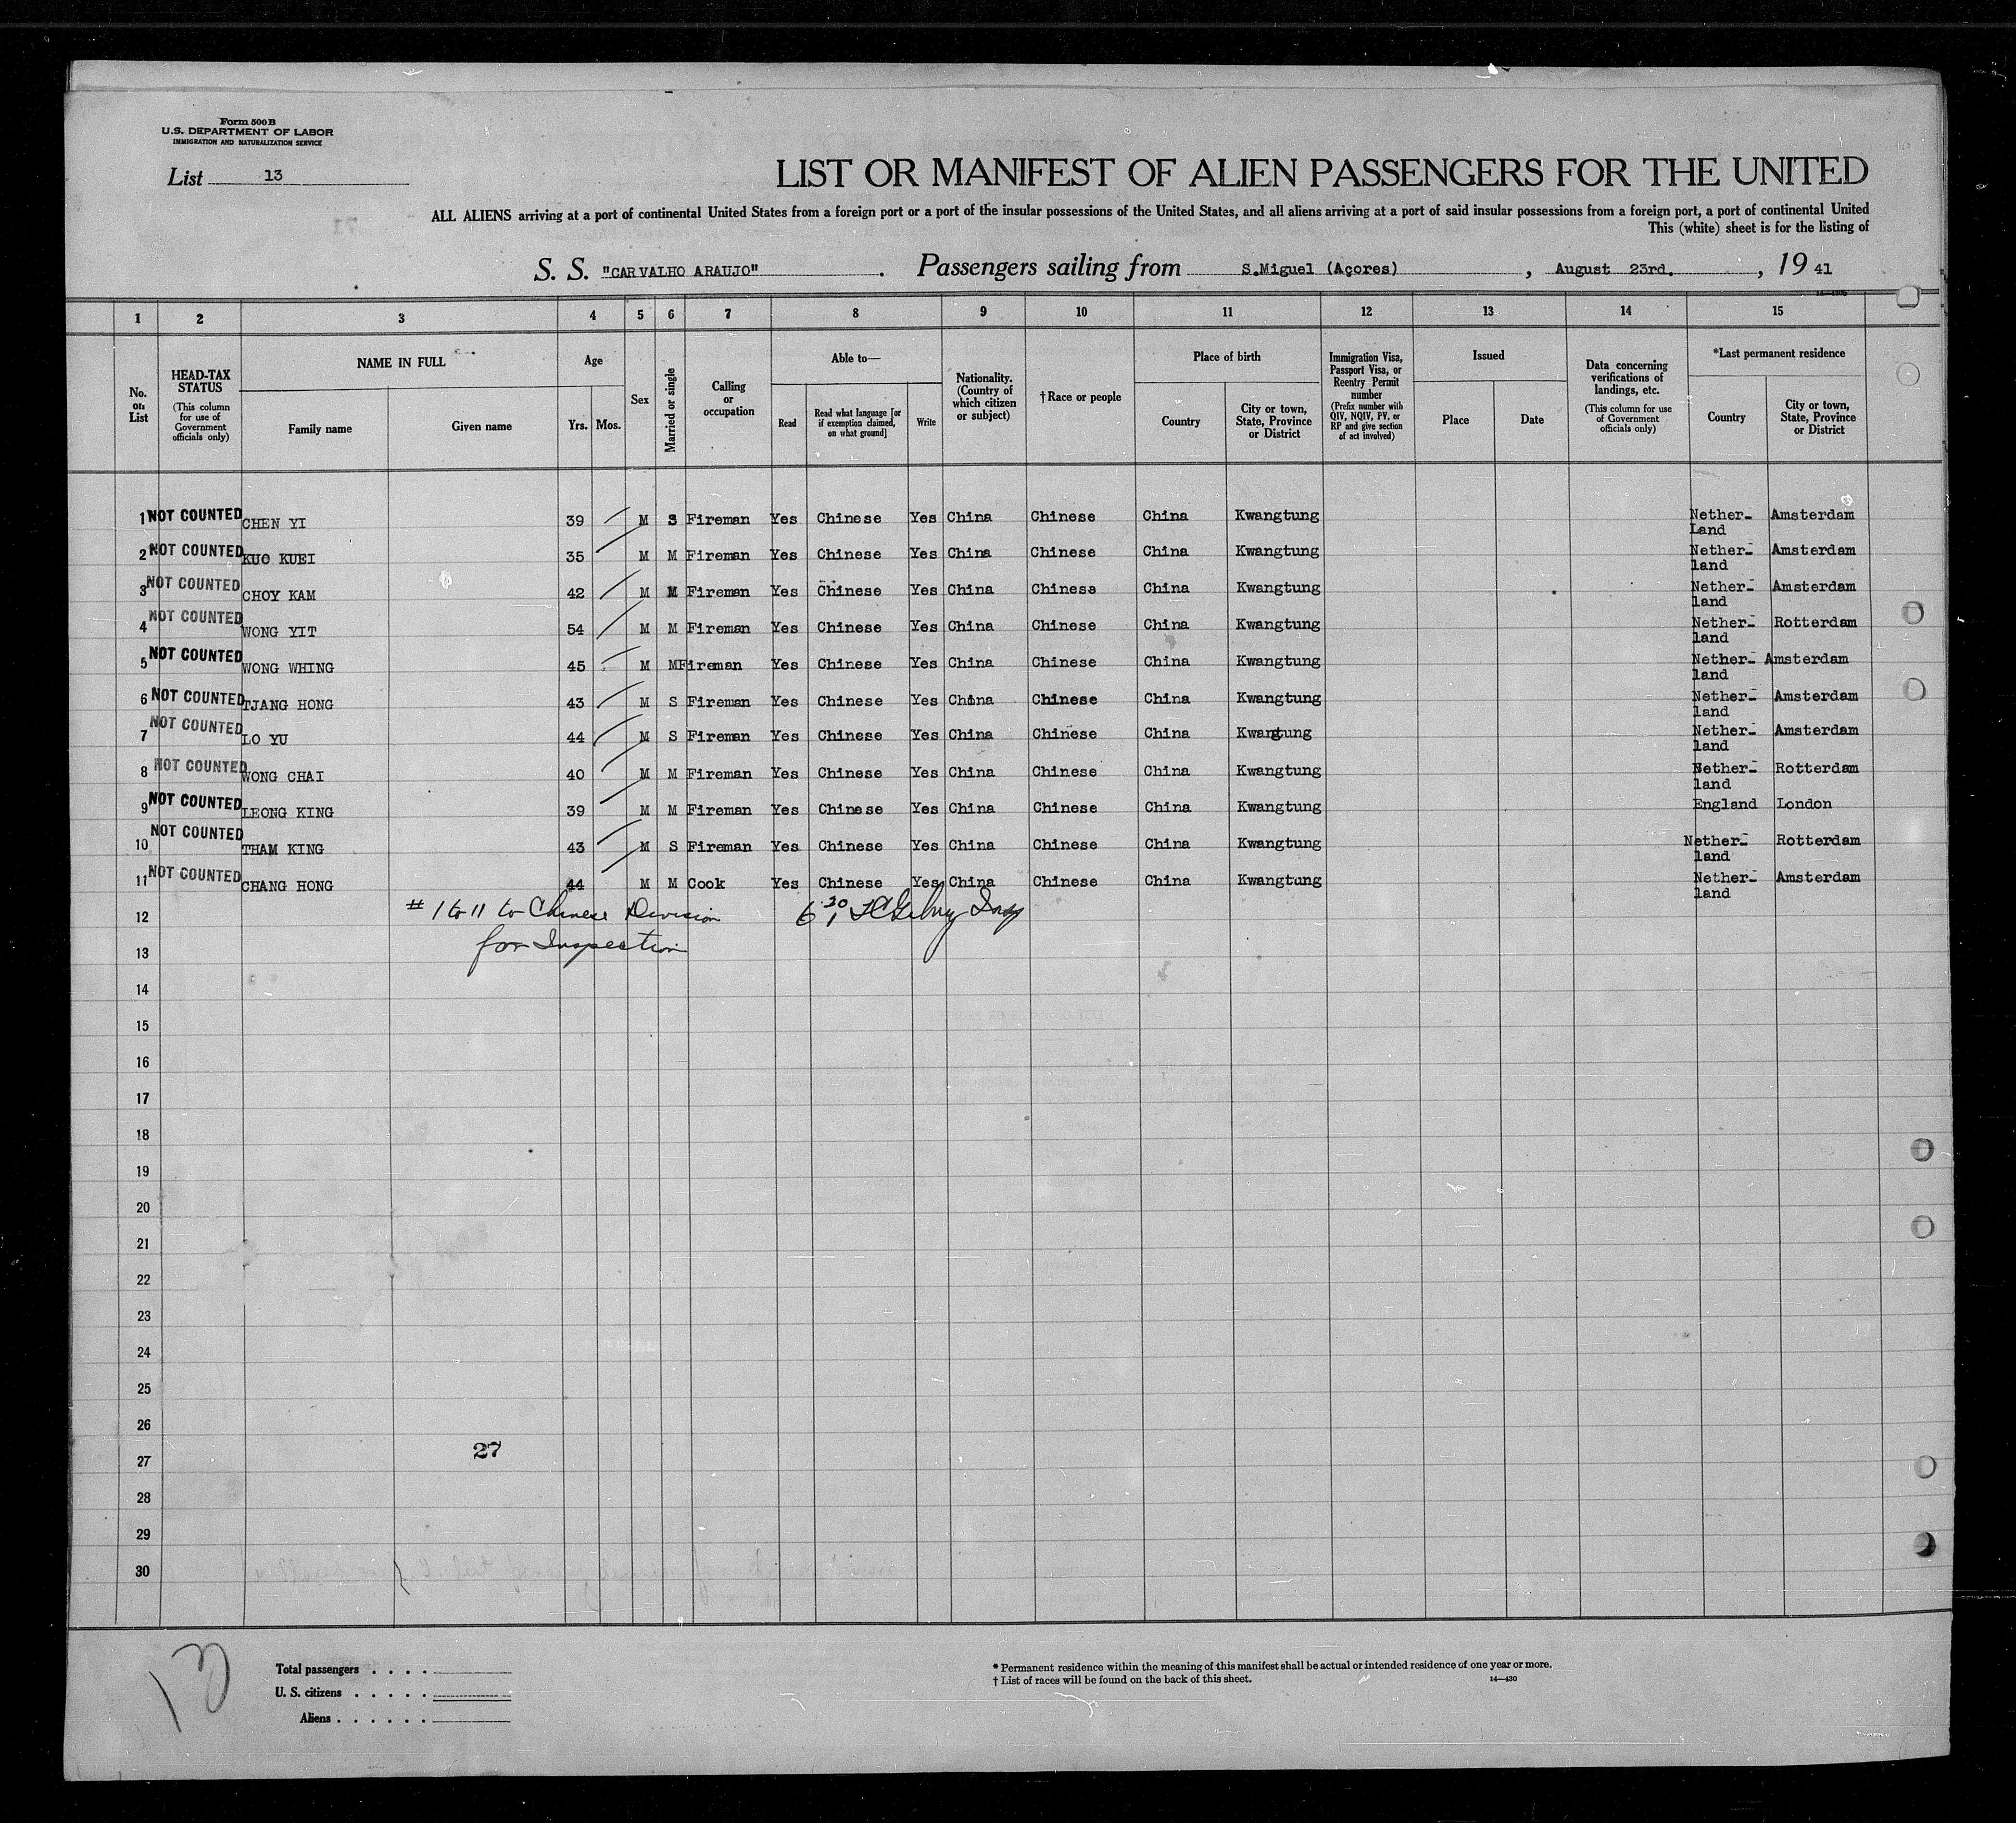 Form 500 B
U.S. DEPARTMENT OF LABOR
IMMIGRATION AND NATURALIZATION SERVICE
List 13
LIST OR MANIFEST OF ALIEN PASSENGERS FOR THE UNITED
ALL ALIENS arriving at a port of continental United States from a foreign port or a port of the insular possessions of the United States, and all aliens arriving at a port of said insular possessions from a foreign port, a port of continental United
This (white) sheet is for the listing of
S. S. "CARVALHO ARAUJO" . Passengers sailing from S.Miguel (Açores) , August 23rd. , 19 41
1 2 3 4 5 6 7 8 9 10 11 12 13 14 15
No. on List
HEAD-TAX STATUS
(This column for use of Government officials only)
NAME IN FULL
Family name Given name
Age
Yrs. Mos.
Sex
Married or single
Calling or occupation
Able to—
Read
Read what language [or if exemption claimed, on what ground]
Write
Nationality. (Country of which citizen or subject)
†Race or people
Place of birth
Country
City or town, State, Province or District
Immigration Visa, Passport Visa, or Reentry Permit number
(Prefix number with QIV, NQIV, PV, or RP and give section of act involved)
Issued
Place Date
Data concerning verifications of landings, etc.
(This column for use of Government officials only)
*Last permanent residence
Country
City or town, State, Province or District
1 NOT COUNTED CHEN YI 39 M S Fireman Yes Chinese Yes China Chinese China Kwangtung Nether- Land Amsterdam
2 NOT COUNTED KUO KUEI 35 M M Fireman Yes Chinese Yes China Chinese China Kwangtung Nether- land Amsterdam
3 NOT COUNTED CHOY KAM 42 M M Fireman Yes Chinese Yes China Chinese China Kwangtung Nether- land Amsterdam
4 NOT COUNTED WONG YIT 54 M M Fireman Yes Chinese Yes China Chinese China Kwangtung Nether- land Rotterdam
5 NOT COUNTED WONG WHING 45 M M Fireman Yes Chinese Yes China Chinese China Kwangtung Nether- land Amsterdam
6 NOT COUNTED TJANG HONG 43 M S Fireman Yes Chinese Yes China Chinese China Kwangtung Nether- land Amsterdam
7 NOT COUNTED LO YU 44 M S Fireman Yes Chinese Yes China Chinese China Kwangtung Nether- land Amsterdam
8 NOT COUNTED WONG CHAI 40 M M Fireman Yes Chinese Yes China Chinese China Kwangtung Nether- land Rotterdam
9 NOT COUNTED LEONG KING 39 M M Fireman Yes Chinese Yes China Chinese China Kwangtung England London
10 NOT COUNTED THAM KING 43 M S Fireman Yes Chinese Yes China Chinese China Kwangtung Nether- land Rotterdam
11 NOT COUNTED CHANG HONG 44 M M Cook Yes Chinese Yes China Chinese China Kwangtung Nether- land Amsterdam
12 # 1 to 11 to Chinese Division
13 for Inspection
14
15
16
17
18
19
20
21
22
23
24
25
26
27 27
28
29
30
Total passengers . . . .
U. S. citizens . . . . .
Aliens . . . . . .
* Permanent residence within the meaning of this manifest shall be actual or intended residence of one year or more.
† List of races will be found on the back of this sheet.
14—430